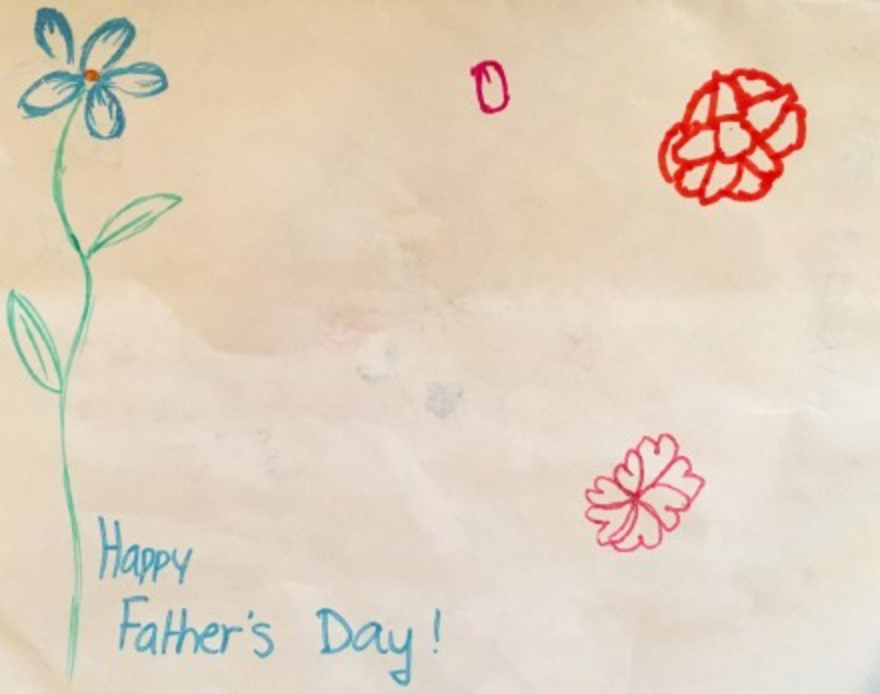 Happy
Father's Day!